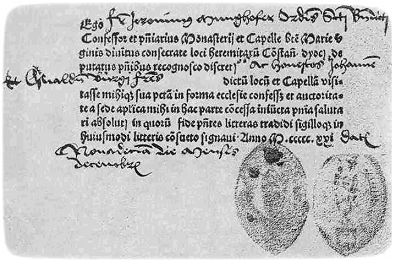 Ego fr Jeronimus Munghofer Ordis Scti Bndicti
Confessor et pñiarius Monasterij et Capelle btē Marie v
ginis divinitus consecrate loci heremitarū Cōstañ. dyoc̄. de
putatus pñibus recognosco discret Ac honestos Johannem
Et Oswaldum fres dictū locū et Capellā visi
tasse mihiqȝ sua pctā in forma ecclesie confessos et auctorita
te a sede aplica mihi in hac parte cōcessa iniucta pñia saluta
ri absolui in quorū fide pñtes litteras tradidi sigilloqȝ in
huiusmodi litteris cōsueto signavi. Anno M. ccccc. xxj datū
Nona die Mensis
decembris